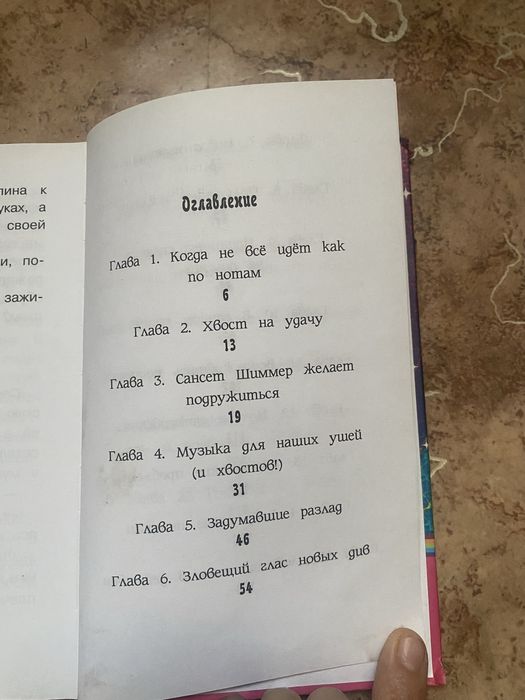 лина к
уках, а
своей
и, по-
зажи-
Оглавление
Глава 1. Когда не всё идёт как
по нотам
6
Глава 2. Хвост на удачу
13
Глава 3. Сансет Шиммер желает
подружиться
19
Глава 4. Музыка для наших ушей
(и хвостов!)
31
Глава 5. Задумавшие разлад
46
Глава 6. Зловещий глас новых див
54